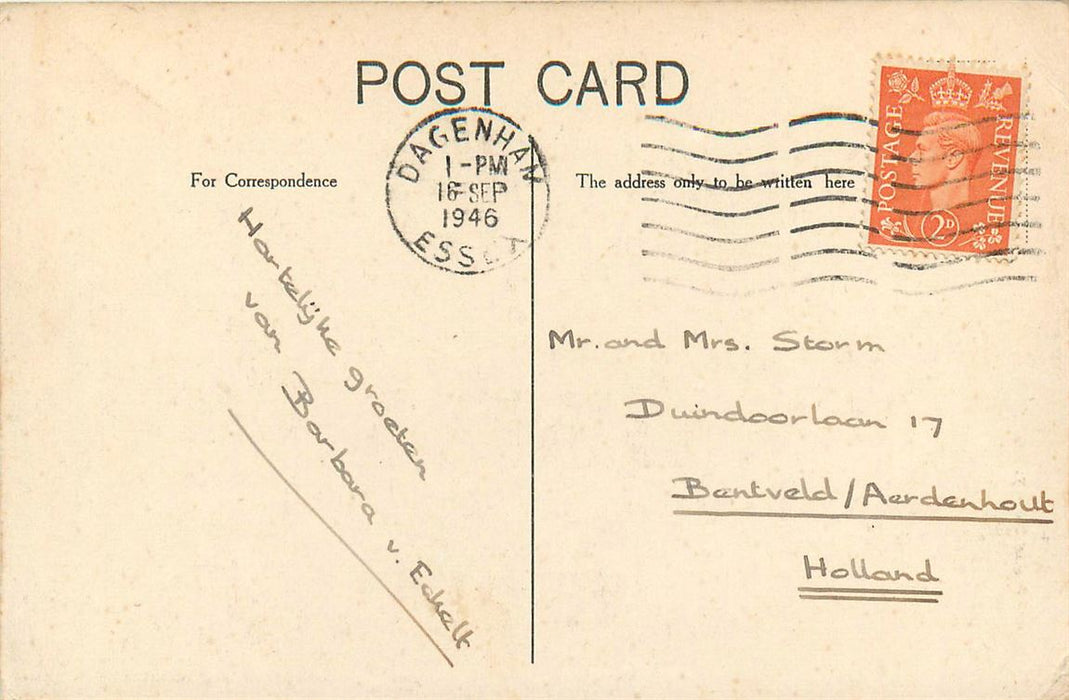 POST CARD
DAGENHAM
1-PM
16 SEP
1946
ESSEX
POSTAGE
REVENUE
2D
For Correspondence
The address only to be written here
Hartelijke groeten
van Barbara v. Echelt
Mr. and Mrs. Storm
Duindoorlaan 17
Bentveld/Aerdenhout
Holland